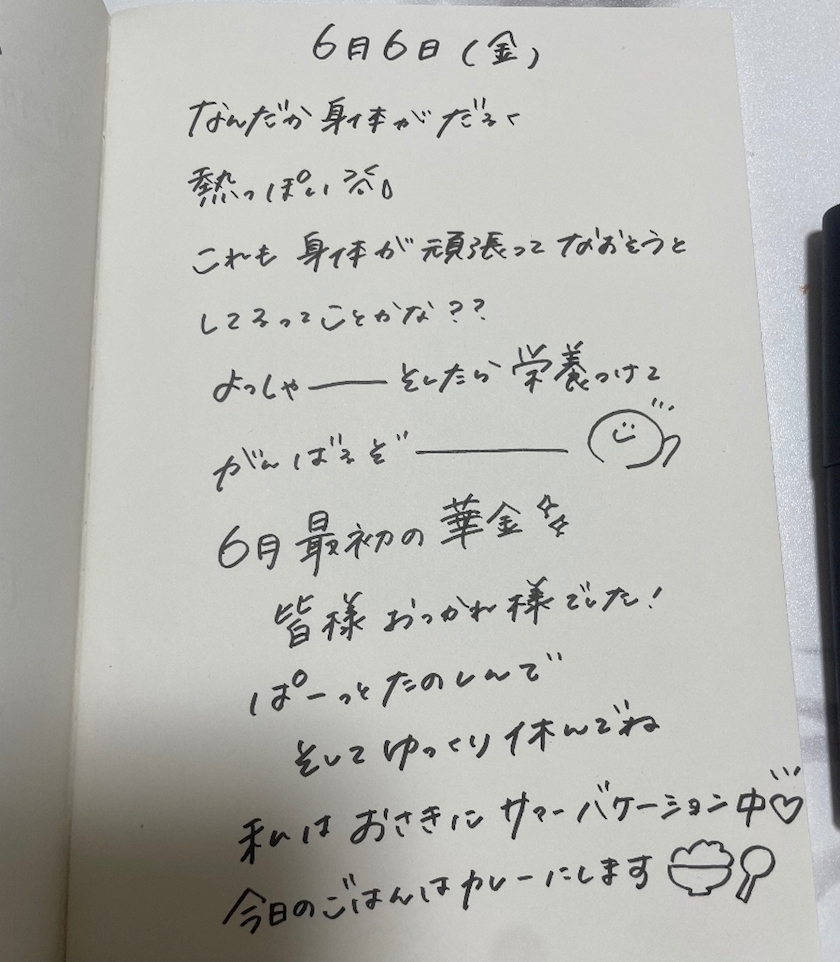 6月6日(金)
なんだか身体がだるく
熱っぽい
これも身体が頑張ってなおそうと
してるってことかな??
よっしゃーーそしたら栄養つけて
がんばるぞーーー
6月最初の華金
皆様おつかれ様でした!
ぱーっとたのしんで
そしてゆっくり休んでね
私はおさきにサマーバケーション中♡
今日のごはんはカレーにします